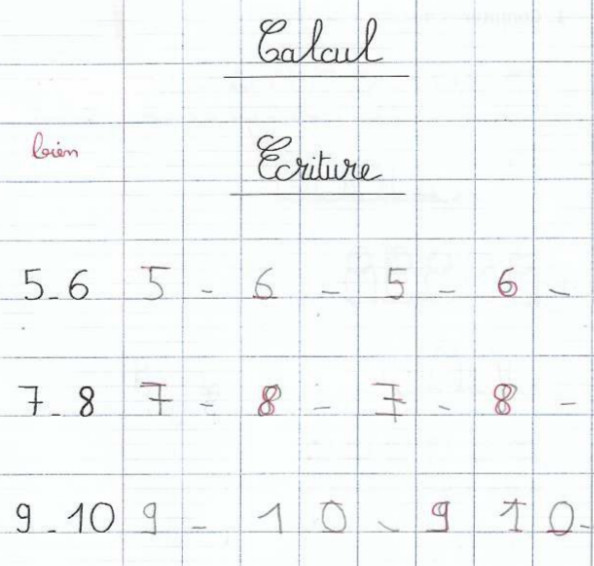 Calcul
bien
Ecriture
5-6 5 - 6 - 5 - 6 -
7-8 7 - 8 - 7 - 8 -
9-10 9 - 10 - 9 10-